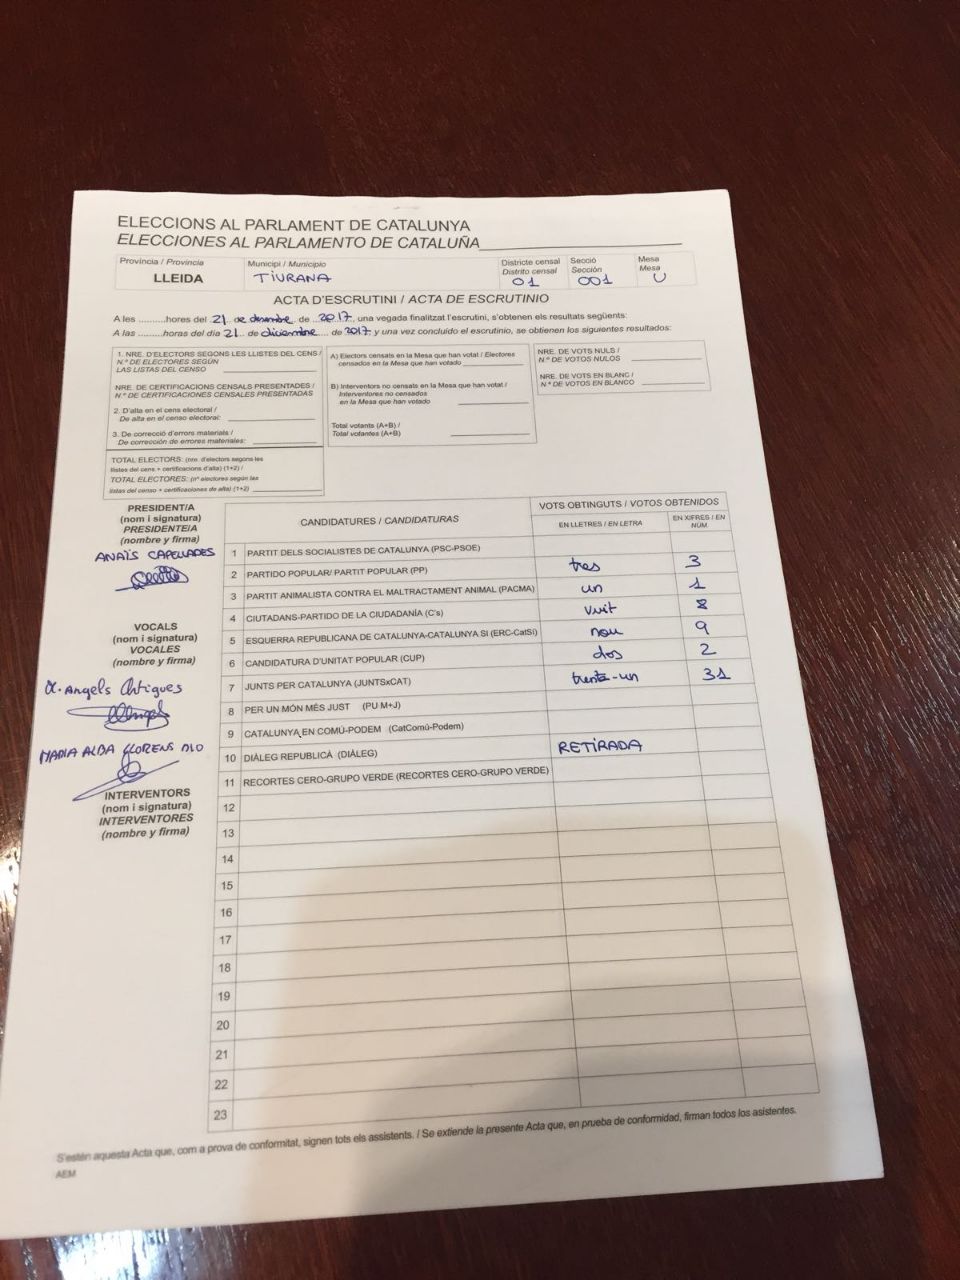 ELECCIONS AL PARLAMENT DE CATALUNYA
ELECCIONES AL PARLAMENTO DE CATALUÑA
Província / Provincia
LLEIDA
Municipi / Municipio
TIURANA
Districte censal
Distrito censal
01
Secció
Sección
001
Mesa
Mesa
U
ACTA D'ESCRUTINI / ACTA DE ESCRUTINIO
A les ..........hores del 21 de desembre de 2017, una vegada finalitzat l'escrutini, s'obtenen els resultats següents:
A las ..........horas del día 21 de diciembre de 2017 y una vez concluido el escrutinio, se obtienen los siguientes resultados:
1. NRE. D'ELECTORS SEGONS LES LLISTES DEL CENS /
N.º DE ELECTORES SEGÚN
LAS LISTAS DEL CENSO
NRE. DE CERTIFICACIONS CENSALS PRESENTADES /
N.º DE CERTIFICACIONES CENSALES PRESENTADAS
2. D'alta en el cens electoral /
De alta en el censo electoral:
3. De correcció d'errors materials /
De corrección de errores materiales:
TOTAL ELECTORS: (nre. d'electors segons les
llistes del cens + certificacions d'alta) (1+2) /
TOTAL ELECTORES: (nº electores según las
listas del censo + certificaciones de alta) (1+2)
A) Electors censats en la Mesa que han votat / Electores
censados en la Mesa que han votado
B) Interventors no censats en la Mesa que han votat /
Interventores no censados
en la Mesa que han votado
Total votants (A+B) /
Total votantes (A+B)
NRE. DE VOTS NULS /
N.º DE VOTOS NULOS
NRE. DE VOTS EN BLANC /
N.º DE VOTOS EN BLANCO
PRESIDENT/A
(nom i signatura)
PRESIDENTE/A
(nombre y firma)
ANAÏS CAPELLADES
VOCALS
(nom i signatura)
VOCALES
(nombre y firma)
M. Angels Artigues
MARIA ALBA FLORENS
INTERVENTORS
(nom i signatura)
INTERVENTORES
(nombre y firma)
CANDIDATURES / CANDIDATURAS
VOTS OBTINGUTS / VOTOS OBTENIDOS
EN LLETRES / EN LETRA
EN XIFRES / EN NÚM.
1 PARTIT DELS SOCIALISTES DE CATALUNYA (PSC-PSOE)
2 PARTIDO POPULAR/ PARTIT POPULAR (PP) tres 3
3 PARTIT ANIMALISTA CONTRA EL MALTRACTAMENT ANIMAL (PACMA) un 1
4 CIUTADANS-PARTIDO DE LA CIUDADANÍA (C's) vuit 8
5 ESQUERRA REPUBLICANA DE CATALUNYA-CATALUNYA SÍ (ERC-CatSí) nou 9
6 CANDIDATURA D'UNITAT POPULAR (CUP) dos 2
7 JUNTS PER CATALUNYA (JUNTSxCAT) trenta-un 31
8 PER UN MÓN MÉS JUST (PU M+J)
9 CATALUNYA EN COMÚ-PODEM (CatComú-Podem)
10 DIÀLEG REPUBLICÀ (DIÀLEG) RETIRADA
11 RECORTES CERO-GRUPO VERDE (RECORTES CERO-GRUPO VERDE)
12
13
14
15
16
17
18
19
20
21
22
23
S'estén aquesta Acta que, com a prova de conformitat, signen tots els assistents. / Se extiende la presente Acta que, en prueba de conformidad, firman todos los asistentes.
AEM